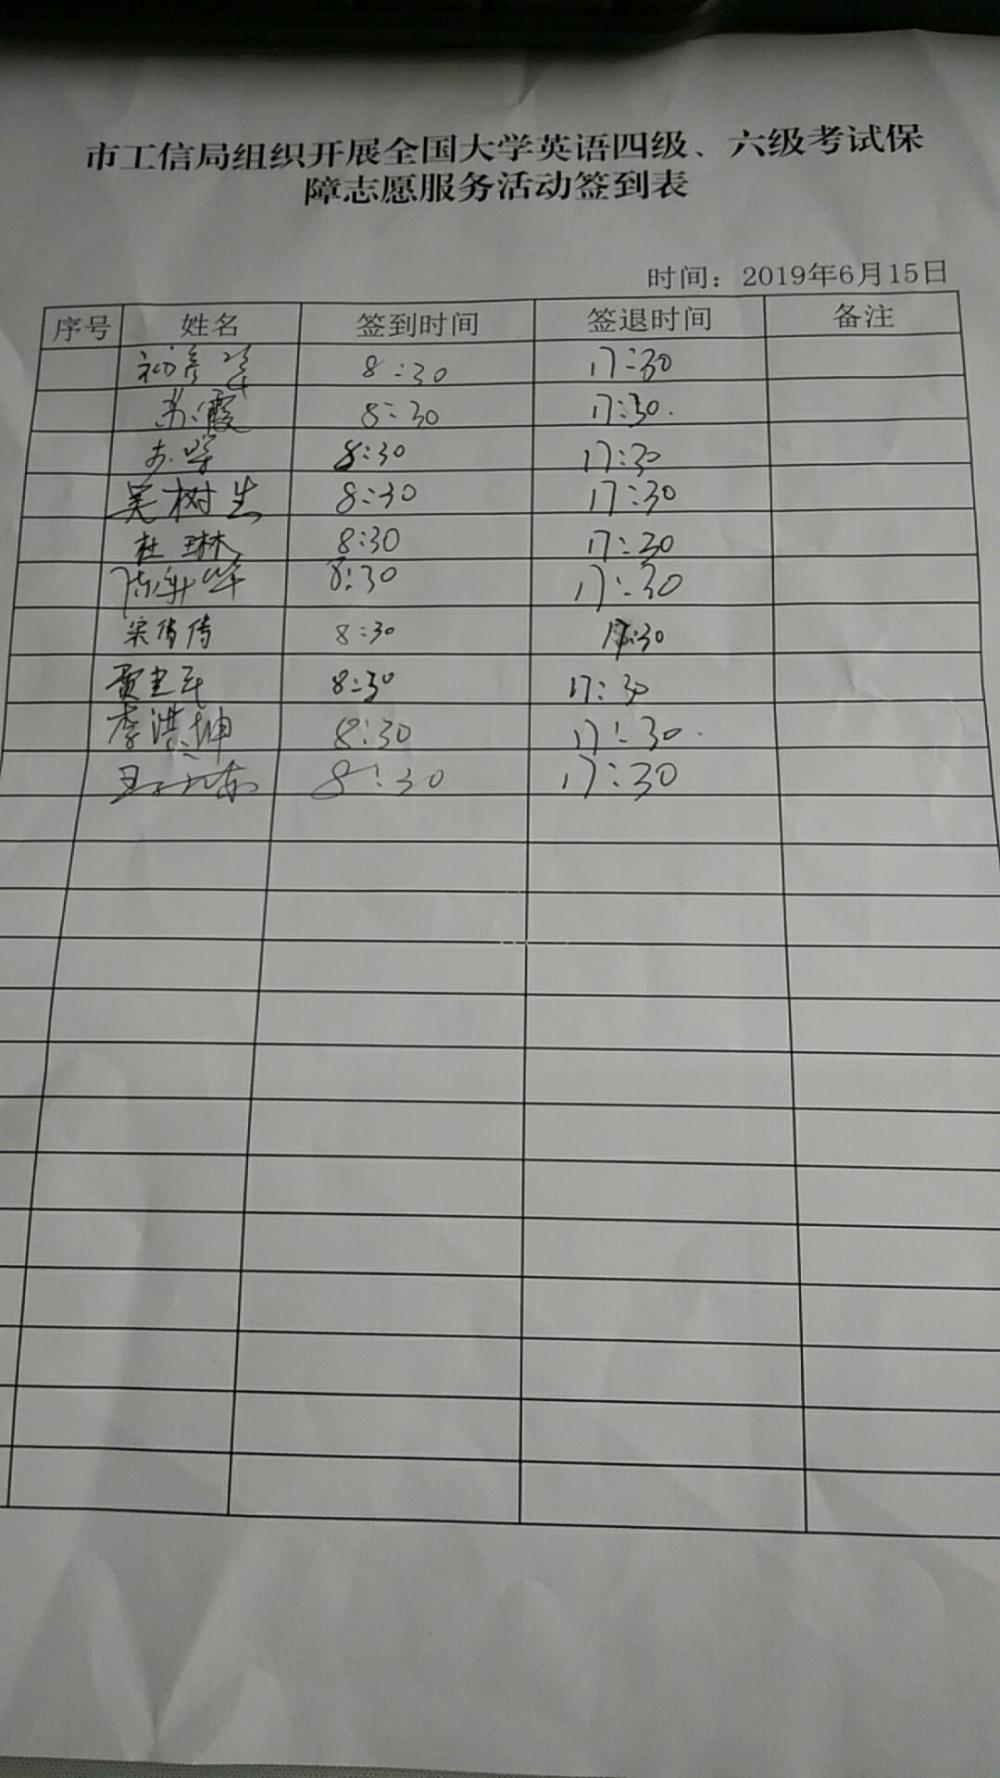 市工信局组织开展全国大学英语四级、六级考试保
障志愿服务活动签到表
时间：2019年6月15日
序号 姓名 签到时间 签退时间 备注
8:30 17:30
苏霞 8:30 17:30.
8:30 17:30
吴树生 8:30 17:30
杜琳 8:30 17:30
8:30 17:30
宋倩倩 8:30 17:30
贾建民 8:30 17:30
李洪坤 8:30 17:30.
8:30 17:30